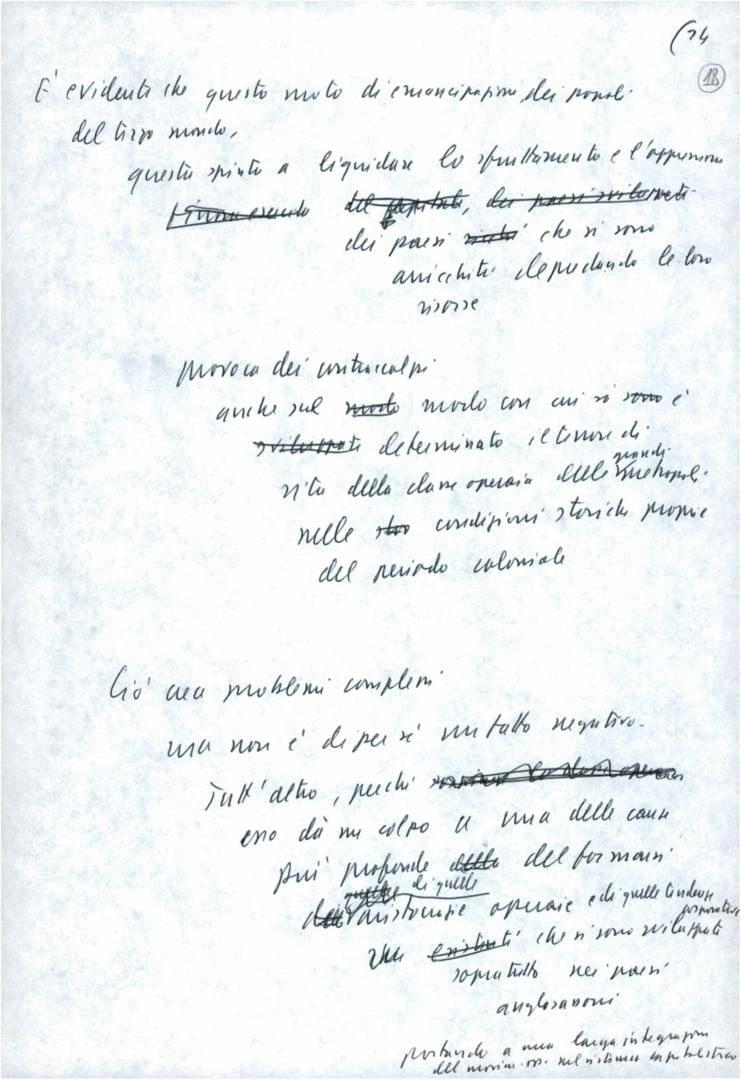 (24
18
E' evidente che questo moto di emancipazione dei popoli
del terzo mondo,
questa spinta a liquidare lo sfruttamento e l'oppressione
del capitale, dei paesi sviluppati
dei paesi ricchi che si sono
arricchiti depredando le loro
risorse
provoca dei contraccolpi
anche sul modo modo con cui si sono è
sviluppati determinato il tenore di
vita della classe operaia delle grandi metropoli
nelle condizioni storiche proprie
del periodo coloniale
Ciò crea problemi complessi
ma non è di per sé un fatto negativo.
Tutt'altro, perché
esso dà un colpo a una delle cause
più profonde della del formarsi
di quelle
aristocrazie operaie e di quelle tendenze
corporative
esistenti che si sono sviluppate
sopratutto nei paesi
anglosassoni
portando a una larga integrazione
del movim. op. nel sistema capitalistico